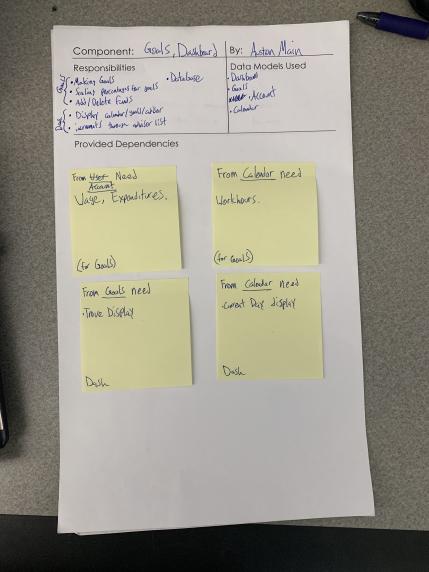 Component: Goals, Dashboard By: Aston Main
Responsibilities
• Making Goals • Database
• Scaling percentages for goals
• Add/Delete Funds
• Display calendar/goals/advisor
• increments through advisor list
Data Models Used
• Dashboard
• Goals
• Account
• Calendar
Provided Dependencies
From User Need
Account
Wage, Expenditures.
(for Goals)
From Calendar need
Workhours.
(for Goals)
From Goals need
• Trove Display
Dash
From Calendar need
• Current Day display
Dash